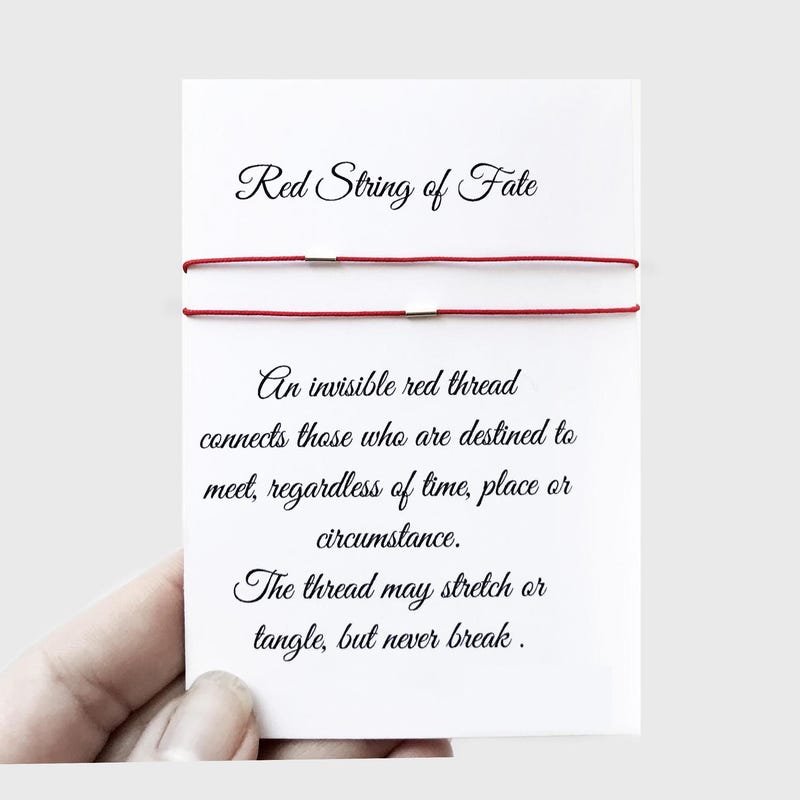 Red String of Fate
An invisible red thread
connects those who are destined to
meet, regardless of time, place or
circumstance.
The thread may stretch or
tangle, but never break .